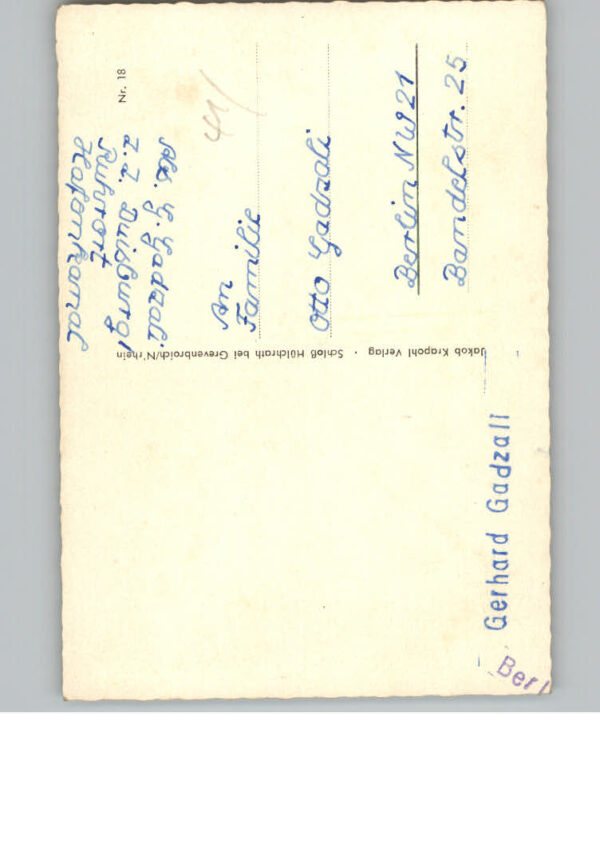 Nr. 18
Abs. G. Gadzali
z. Z. Duisburg/
Ruhrort
Hafenkanal
41/
An
Familie
Otto Gadzali
Berlin NW 21
Bandelstr. 25
Jakob Krapohl Verlag · Schloß Hülchrath bei Grevenbroich/N'rhein
Gerhard Gadzali
Berl